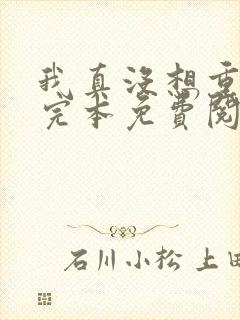 我真没想重
完本免费阅
石川小松 上田